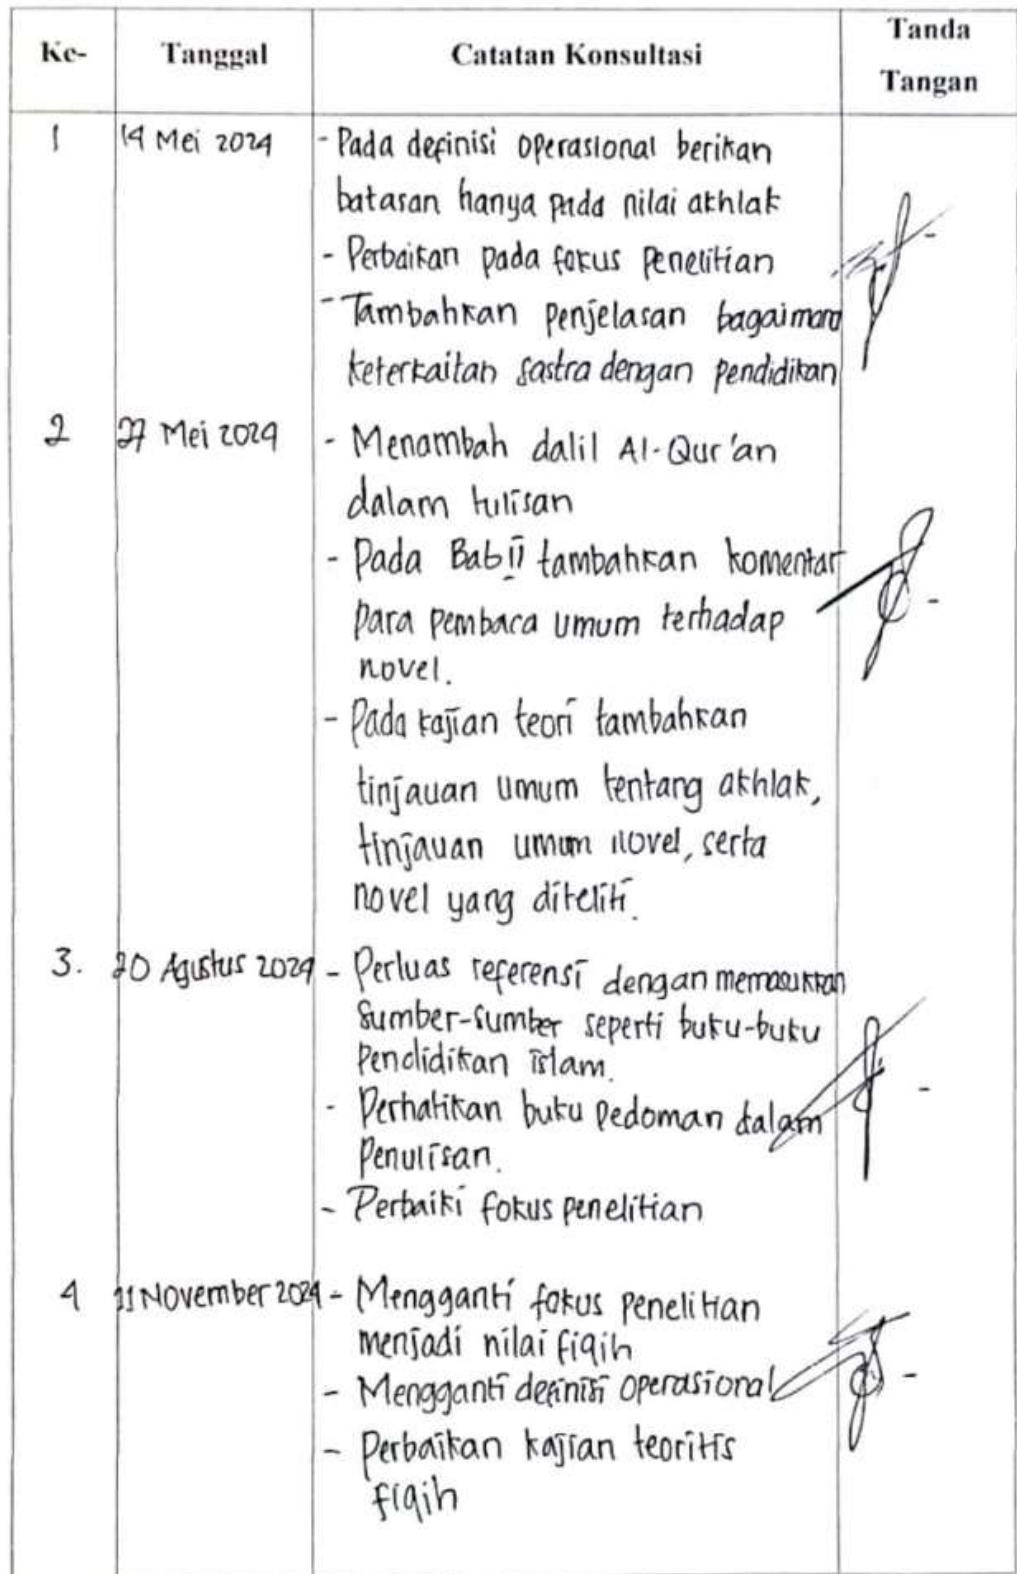 Ke- Tanggal Catatan Konsultasi Tanda Tangan
1 14 Mei 2024 - Pada definisi operasional berikan
batasan hanya pada nilai akhlak
- Perbaikan pada fokus penelitian
- Tambahkan penjelasan bagaimana
keterkaitan sastra dengan pendidikan
2 27 Mei 2024 - Menambah dalil Al-Qur'an
dalam tulisan
- Pada Bab II tambahkan komentar
para pembaca umum terhadap
novel.
- Pada kajian teori tambahkan
tinjauan umum tentang akhlak,
tinjauan umum novel, serta
novel yang diteliti.
3. 20 Agustus 2024 - Perluas referensi dengan memasukkan
sumber-sumber seperti buku-buku
Pendidikan islam.
- Perhatikan buku pedoman dalam
Penulisan.
- Perbaiki fokus penelitian
4 11 November 2024 - Mengganti fokus penelitian
menjadi nilai fiqih
- Mengganti definisi operasional
- Perbaikan kajian teoritis
fiqih